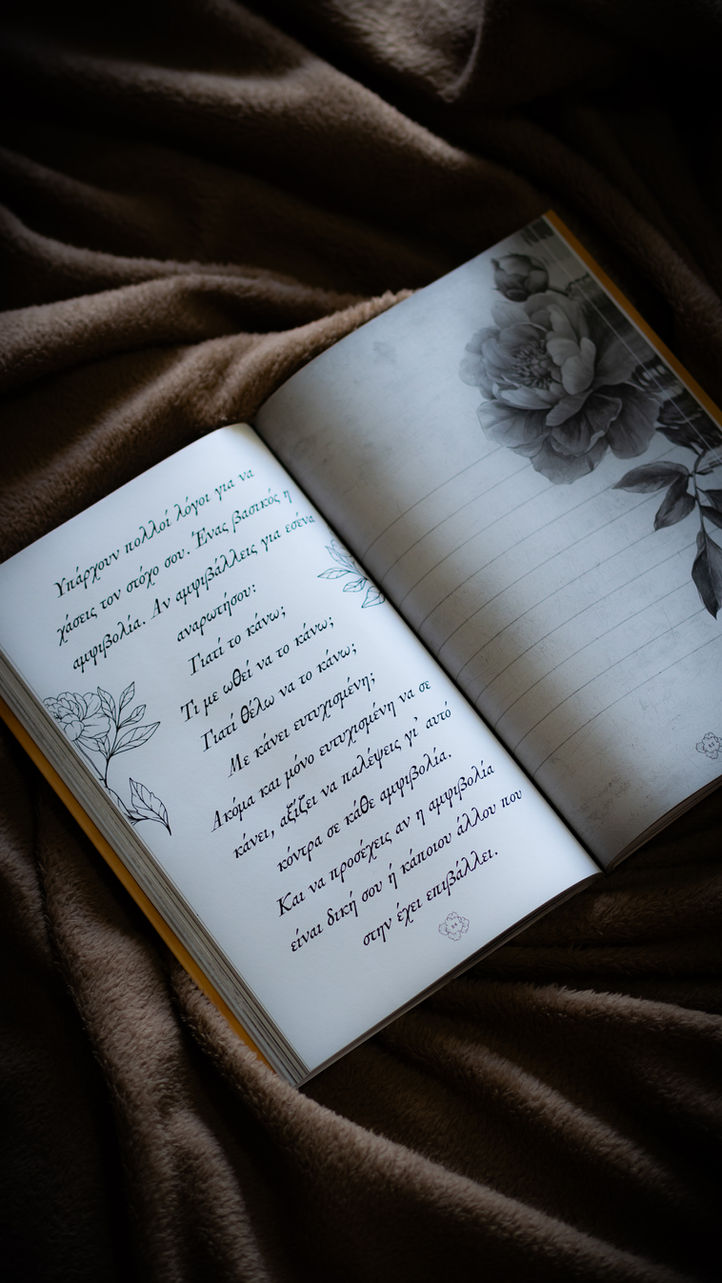 Υπάρχουν πολλοί λόγοι για να
χάσεις τον στόχο σου. Ένας βασικός η
αμφιβολία. Αν αμφιβάλλεις για εσένα
αναρωτήσου:
Γιατί το κάνω;
Τι με ωθεί να το κάνω;
Γιατί θέλω να το κάνω;
Με κάνει ευτυχισμένη;
Ακόμα και μόνο ευτυχισμένη να σε
κάνει, αξίζει να παλέψεις γι' αυτό
κόντρα σε κάθε αμφιβολία.
Και να προσέχεις αν η αμφιβολία
είναι δική σου ή κάποιου άλλου που
στην έχει επιβάλλει.